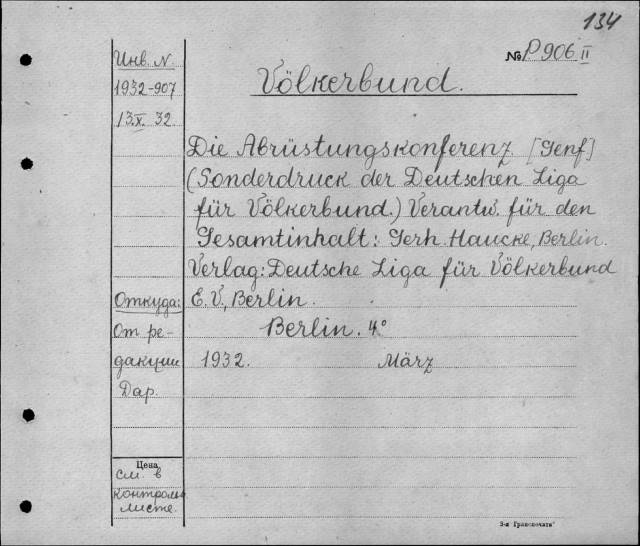 134
Инв. N.
№ P906 II
Völkerbund.
1932-907
13.X. 32.
Die Abrüstungskonferenz [Genf]
(Sonderdruck der Deutschen Liga
für Völkerbund.) Verantw. für den
Gesamtinhalt: Gerh. Haucke, Berlin.
Verlag: Deutsche Liga für Völkerbund
Откуда: E. V., Berlin.
От ре- Berlin. 4°
дакции 1932. März
Дар.
Цена
см. в
контрольн.
листе.
3-я Гранпечать"